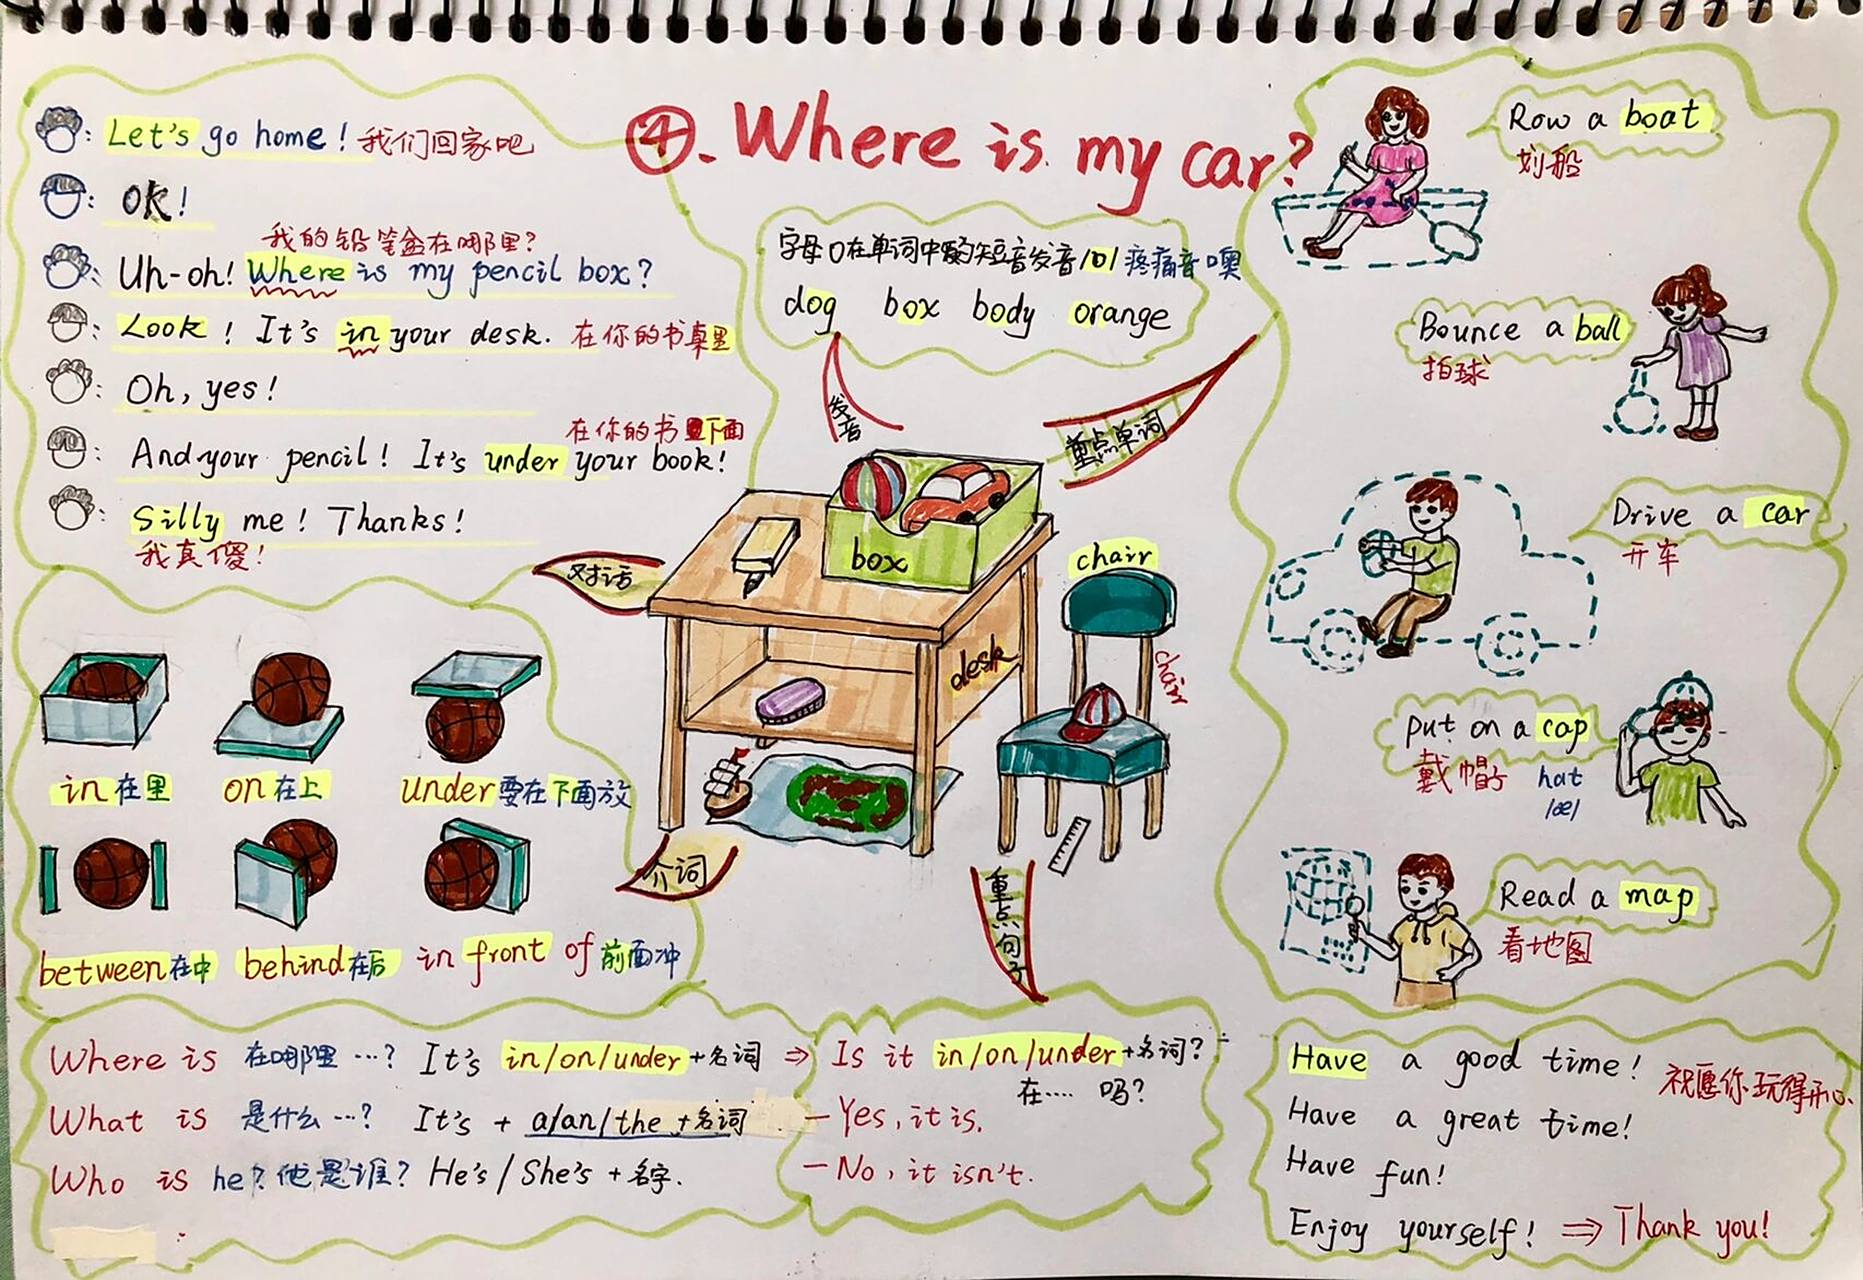 ④. Where is my car?
Let's go home! 我们回家吧
OK!
我的铅笔盒在哪里?
Uh-oh! Where is my pencil box?
Look! It's in your desk. 在你的书桌里
Oh, yes!
在你的书下面
And your pencil! It's under your book!
Silly me! Thanks!
我真傻!
对话
字母O在单词中的短音发音/ɒ/疼痛音噢
dog box body orange
发音
重点单词
box
desk
chair
chair
Row a boat
划船
Bounce a ball
拍球
Drive a car
开车
put on a cap
戴帽子 hat
/æ/
Read a map
看地图
in 在里 on 在上 under 要在下面放
between 在中 behind 在后 in front of 前面冲
介词
重点句子
Where is 在哪里…? It's in/on/under+名词 ⇒
What is 是什么…? It's + a/an/the +名词
Who is he? 他是谁? He's / She's + 名字.
Is it in/on/under+名词?
在…. 吗?
— Yes, it is.
— No, it isn't.
Have a good time! 祝愿你玩得开心.
Have a great time!
Have fun!
Enjoy yourself! ⇒ Thank you!